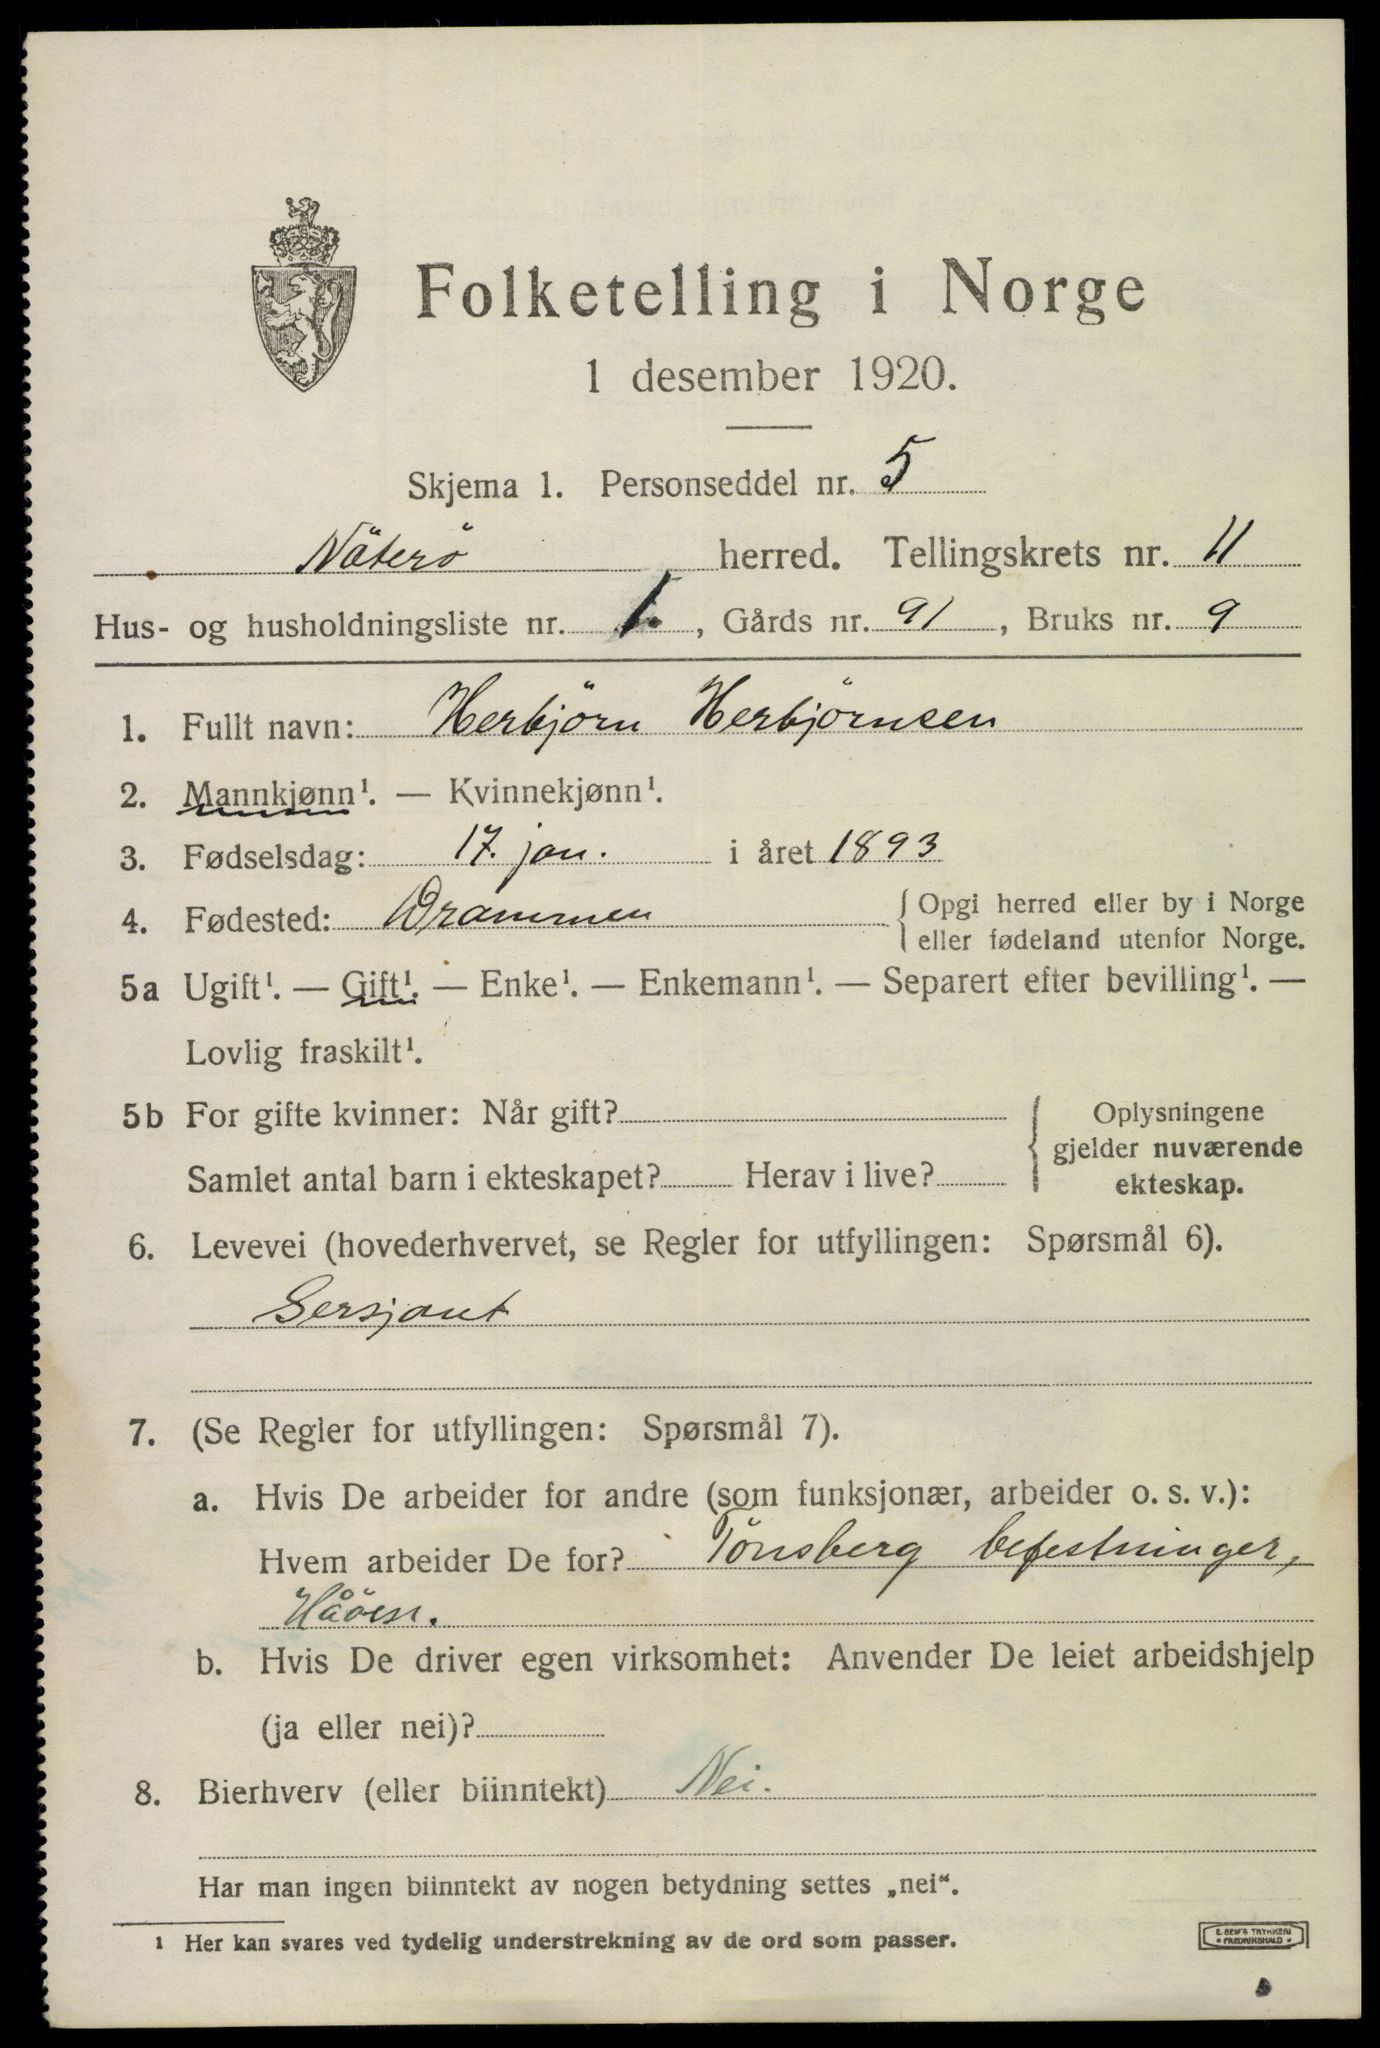 Folketelling i Norge
1 desember 1920.
Skjema 1. Personseddel nr. 5
Nöterö herred. Tellingskrets nr. 11
Hus- og husholdningsliste nr. 1., Gårds nr. 91, Bruks nr. 9
1. Fullt navn: Herbjörn Herbjörnsen
2. Mannkjønn¹. — Kvinnekjønn¹.
3. Fødselsdag: 17. jan. i året 1893
4. Fødested: Drammen { Opgi herred eller by i Norge
eller fødeland utenfor Norge.
5a Ugift¹. — Gift¹. — Enke¹. — Enkemann¹. — Separert efter bevilling¹. —
Lovlig fraskilt¹.
5b For gifte kvinner: Når gift? { Oplysningene
gjelder nuværende
Samlet antal barn i ekteskapet? Herav i live? ekteskap.
6. Levevei (hovederhvervet, se Regler for utfyllingen: Spørsmål 6).
Sersjant
7. (Se Regler for utfyllingen: Spørsmål 7).
a. Hvis De arbeider for andre (som funksjonær, arbeider o. s. v.):
Hvem arbeider De for? Tönsberg befestninger,
Håöen.
b. Hvis De driver egen virksomhet: Anvender De leiet arbeidshjelp
(ja eller nei)?
8. Bierhverv (eller biinntekt) Nei.
Har man ingen biinntekt av nogen betydning settes „nei“.
1 Her kan svares ved tydelig understrekning av de ord som passer.
E SEM'S TRYKKERI
FREDRIKSHALD